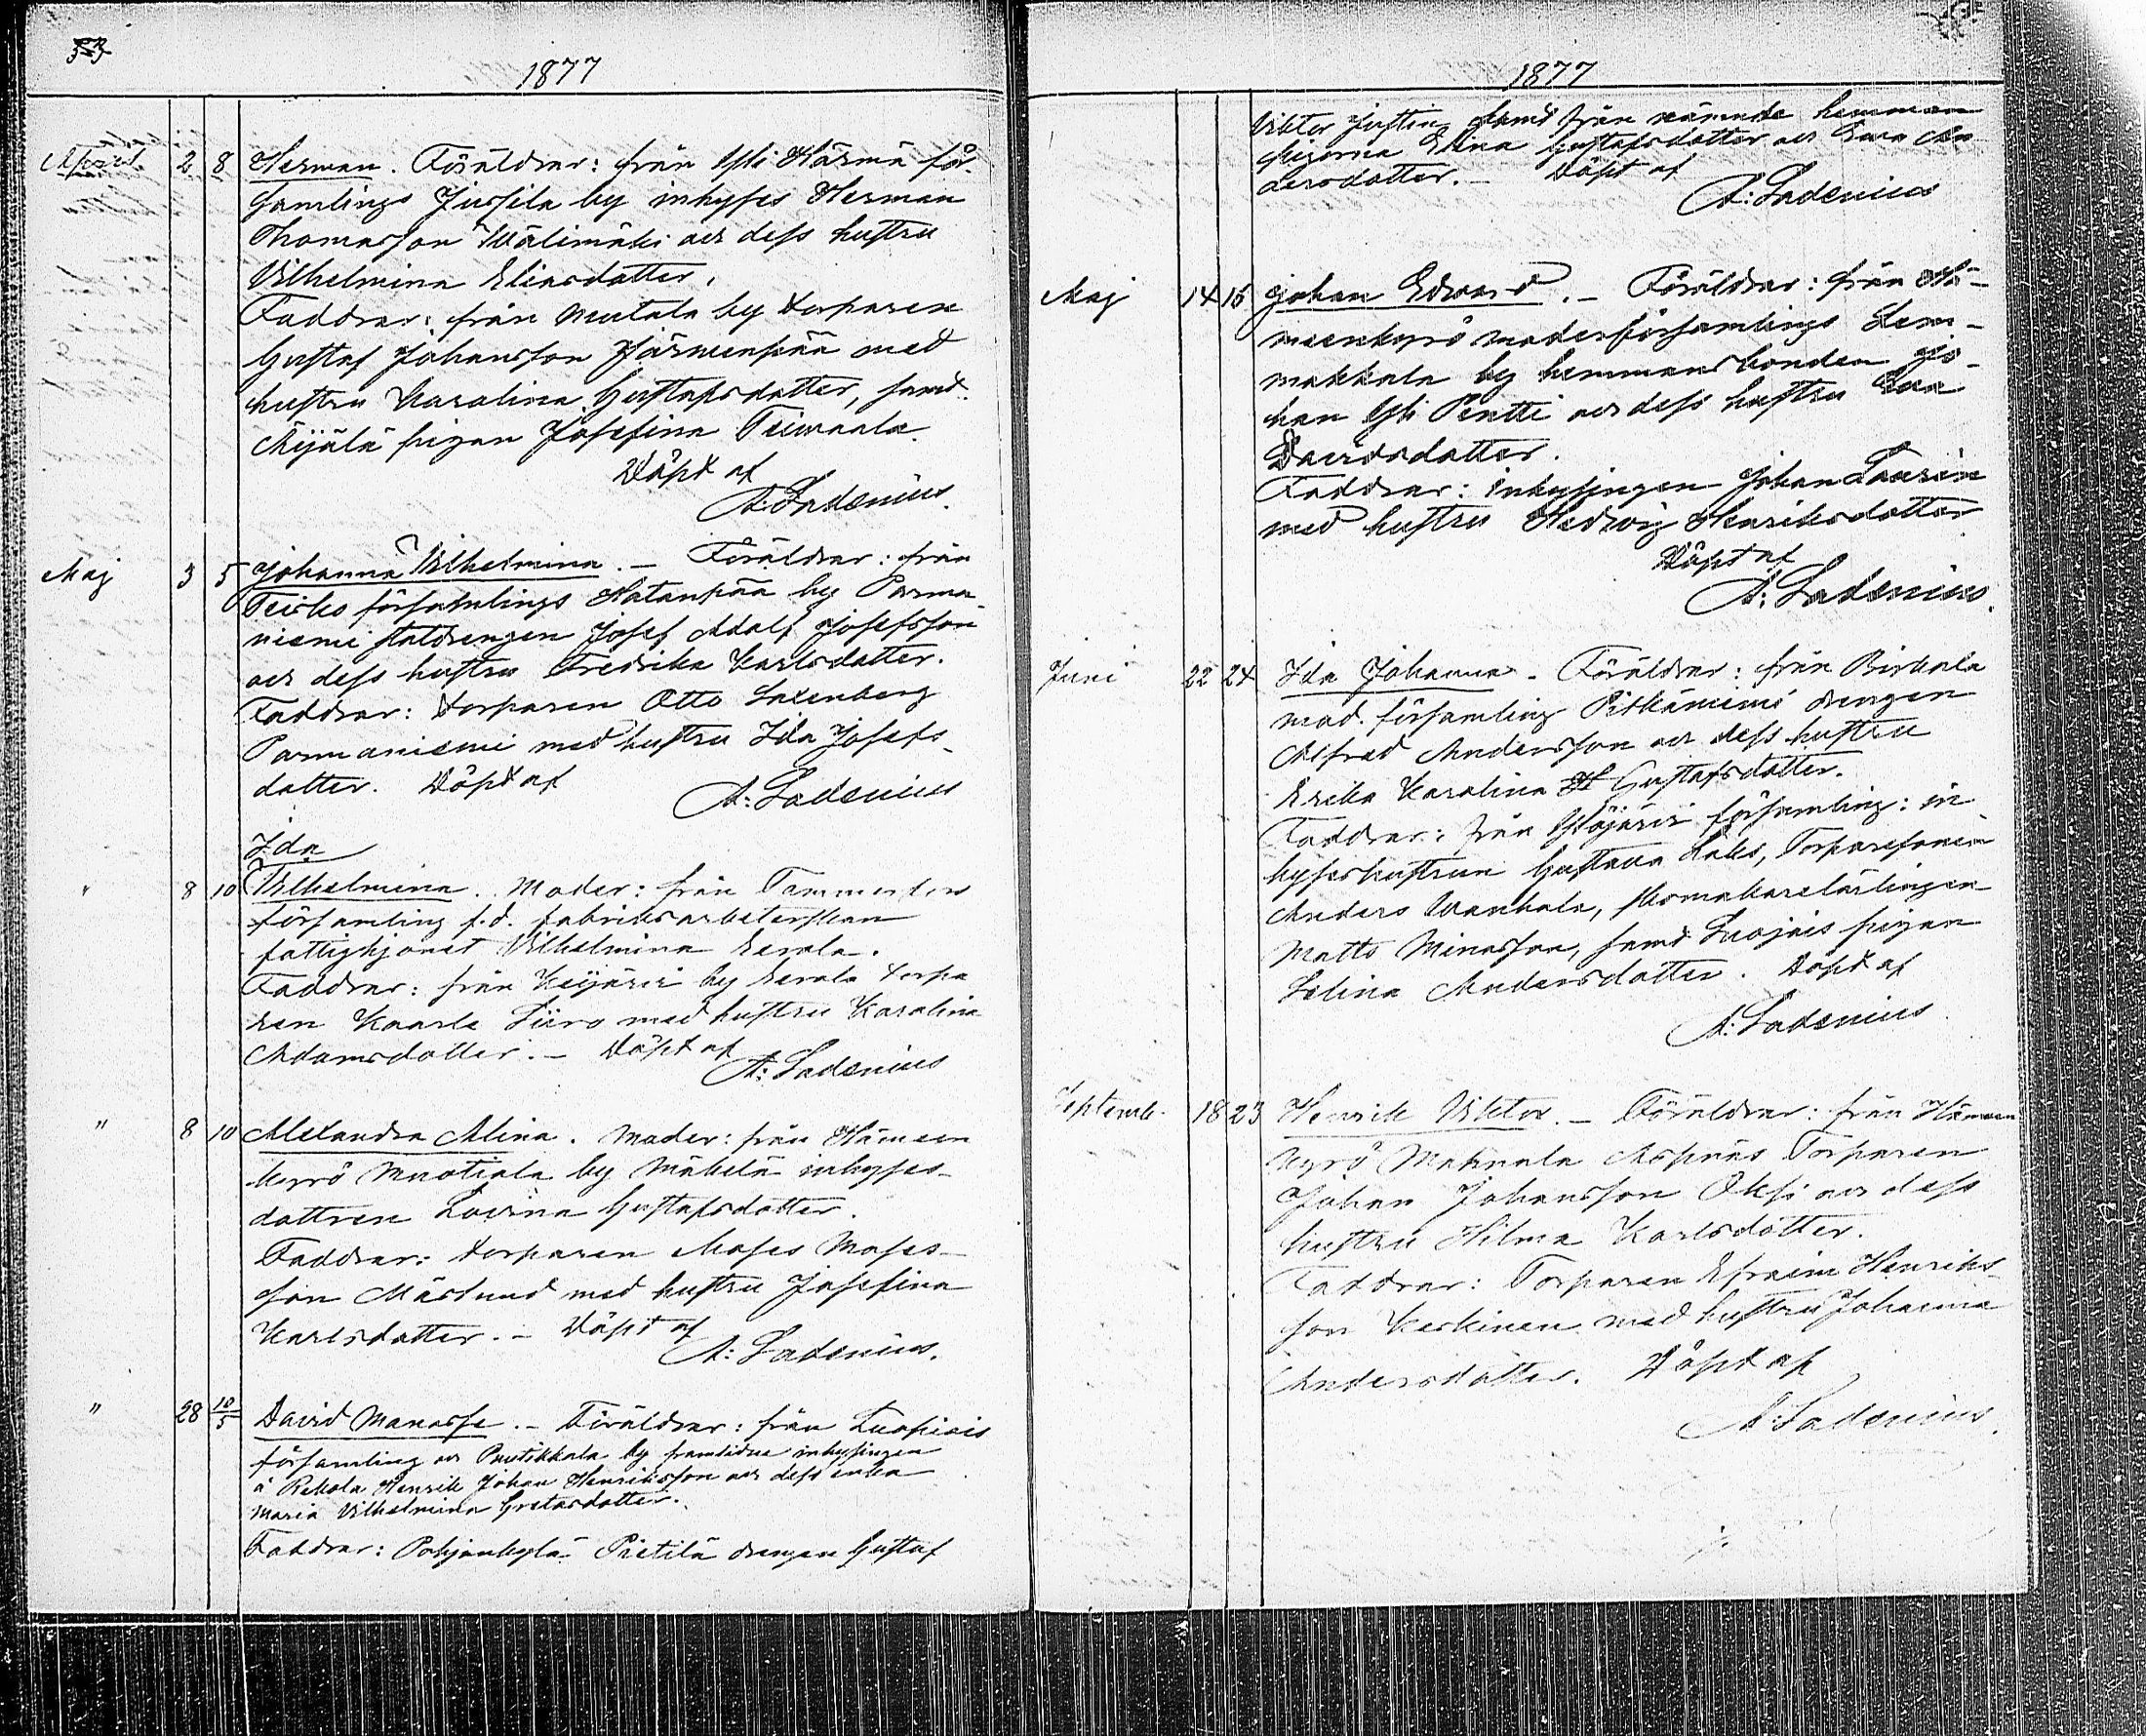 1877
April 2 8 Herman. Föräldrar: från Ylihärmä för-
samlings Jussila by inhyses Herman
Thomasson Wälimäki och dess hustru
Vilhelmina Eliasdotter.
Faddrar: från Mutala by torparen
Gustaf Johansson Järvenpää med
hustru Karolina Gustafsdotter, samt
Äijälä pigan Josefina Teivaala.
Döpt af
A: Ladenius.
Maj 3 5 Johanna Vilhelmina. – Föräldrar: från
Teisko församlings Hatanpää by Parma-
niemi statdrengen Josef Adolf Josefsson
och dess hustru Fredrika Karlsdotter.
Faddrar: torparen Otto Saxenberg
Parmaniemi med hustru Ida Josefs-
dotter. Döpt af A: Ladenius
Ida
" 8 10 Vilhelmina. Moder: från Tammerfors
församling f.d. fabriksarbeterskan
fattighjonet Vilhelmina Kerola.
Faddrar: från Keijärvi by Kerola torpa
ren Kaarle Siiro med hustru Karolina
Adamsdotter. – Döpt af
A: Ladenius
" 8 10 Alexandra Alina. Moder: från Hämeen
kyrö Muotiala by Mäkelä inhyses-
dottren Lovina Gustafsdotter.
Faddrar: torparen Moses Moses-
son Mäslund med hustru Josefina
Karlsdotter. – Döpt af
A: Ladenius.
" 28 10/5 David Manasse. – Föräldrar: från Luopiois
församling och Puutikkala by framlidne inhysingen
å Rekola Henrik Johan Henriksson och dess enka
Maria Vilhelmina Gretasdotter.
Faddrar: Pohjankylä Pietilä drengen Gustaf
1877
Viktor Justin samt från nämnde hemman
pigorna Elina Gustafsdotter och Eva An
dersdotter. – Döpt af
A: Ladenius
Maj 14 15 Johan Edvard. – Föräldrar: från Hä-
meenkyrö moderförsamlings Lem-
makkala by hemmansbonden Jo-
han Yli Pentti och dess hustru Eva
Davidsdotter.
Faddrar: inhysingen Johan Taurén
med hustru Hedvig Henriksdotter
Döpt af
A: Ladenius.
Juni 22 24 Ida Johanna. Föräldrar: från Birkala
mod. församling Pitkäniemi drengen
Alfred Andersson och dess hustru
Erika Karolina Gustafsdotter.
Faddrar: från Ylöjärvi församling: in
hyseshustrun Gustava Laks, Torparesonen
Anders Vanhala, skomakarelärlingen
Matts Minasson, samt Luojais pigan
Selina Andersdotter. Döpt af
A: Ladenius.
Septemb. 18 23 Henrik Viktor. – Föräldrar: från Hämeen
kyrö Mahnala Aspnäs Torparen
Johan Johansson Oksi och dess
hustru Hilma Karlsdotter.
Faddrar: Torparen Efraim Henriks-
son Keskinen med hustru Johanna
Andersdotter. Döpt af
A: Ladenius.